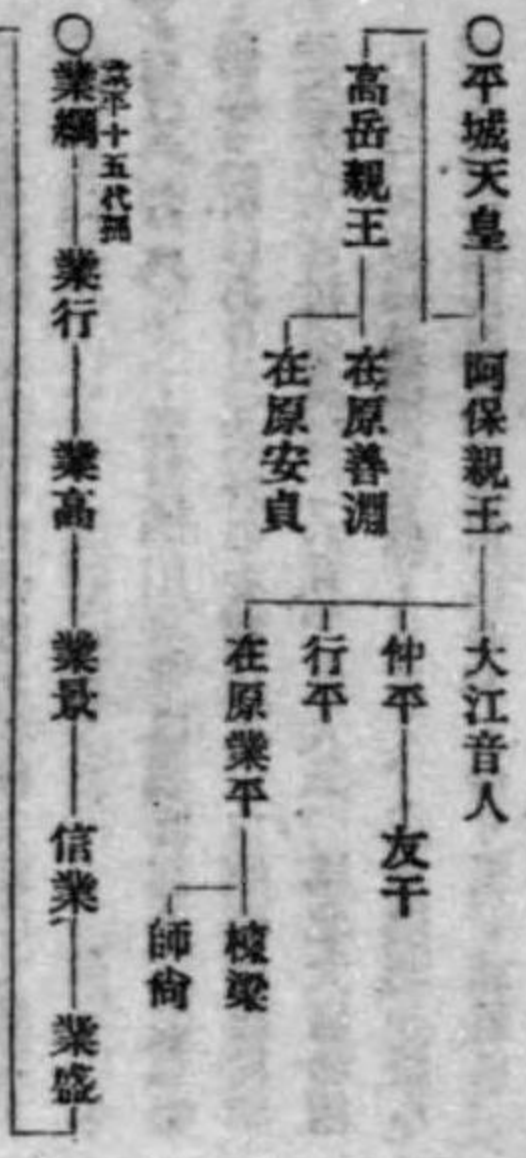 〇平城天皇
阿保親王
大江音人
仲平
友于
行平
在原業平
棟梁
師尙
高岳親王
在原善淵
在原安貞
〇業綱
業平十五代孫
業行
業高
業景
信業
業盛